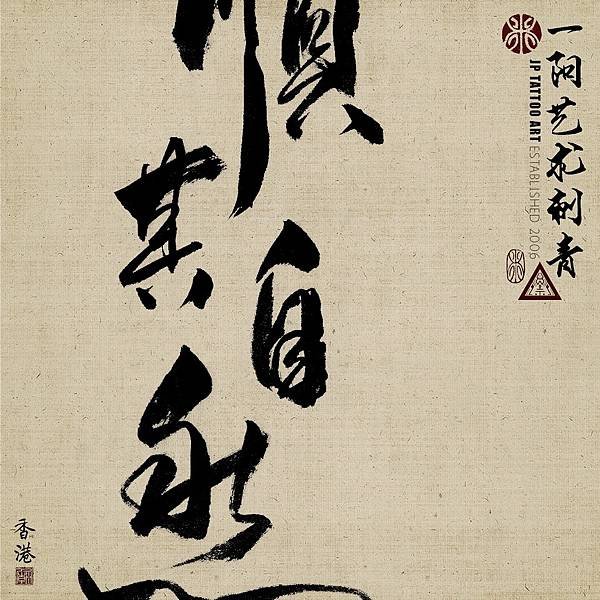 順
其
自
然
一阿艺术刺青
JP TATTOO ART ESTABLISHED 2006
香港